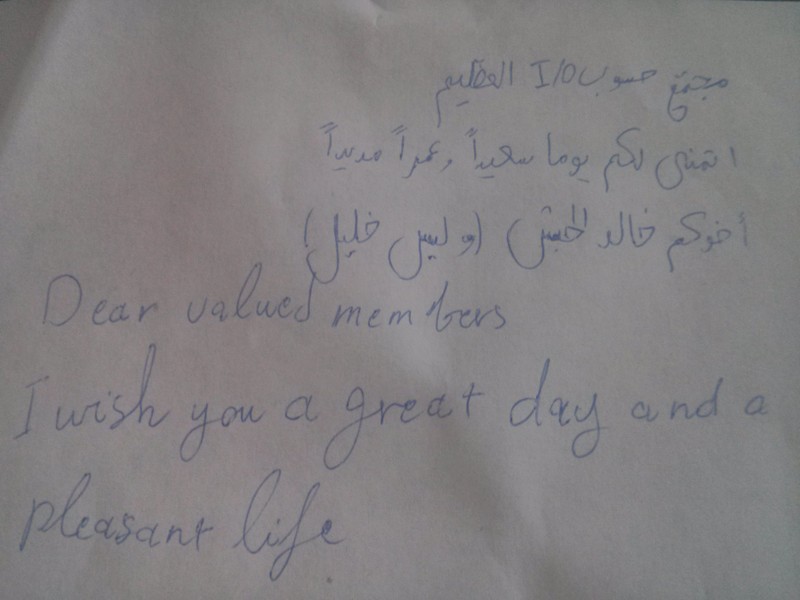 مجتمع حسوب I/O العظيم
اتمنى لكم يوما سعيداً وعمراً مديداً
أخوكم خالد الحبش (وليس خليل)
Dear valued members
I wish you a great day and a
pleasant life